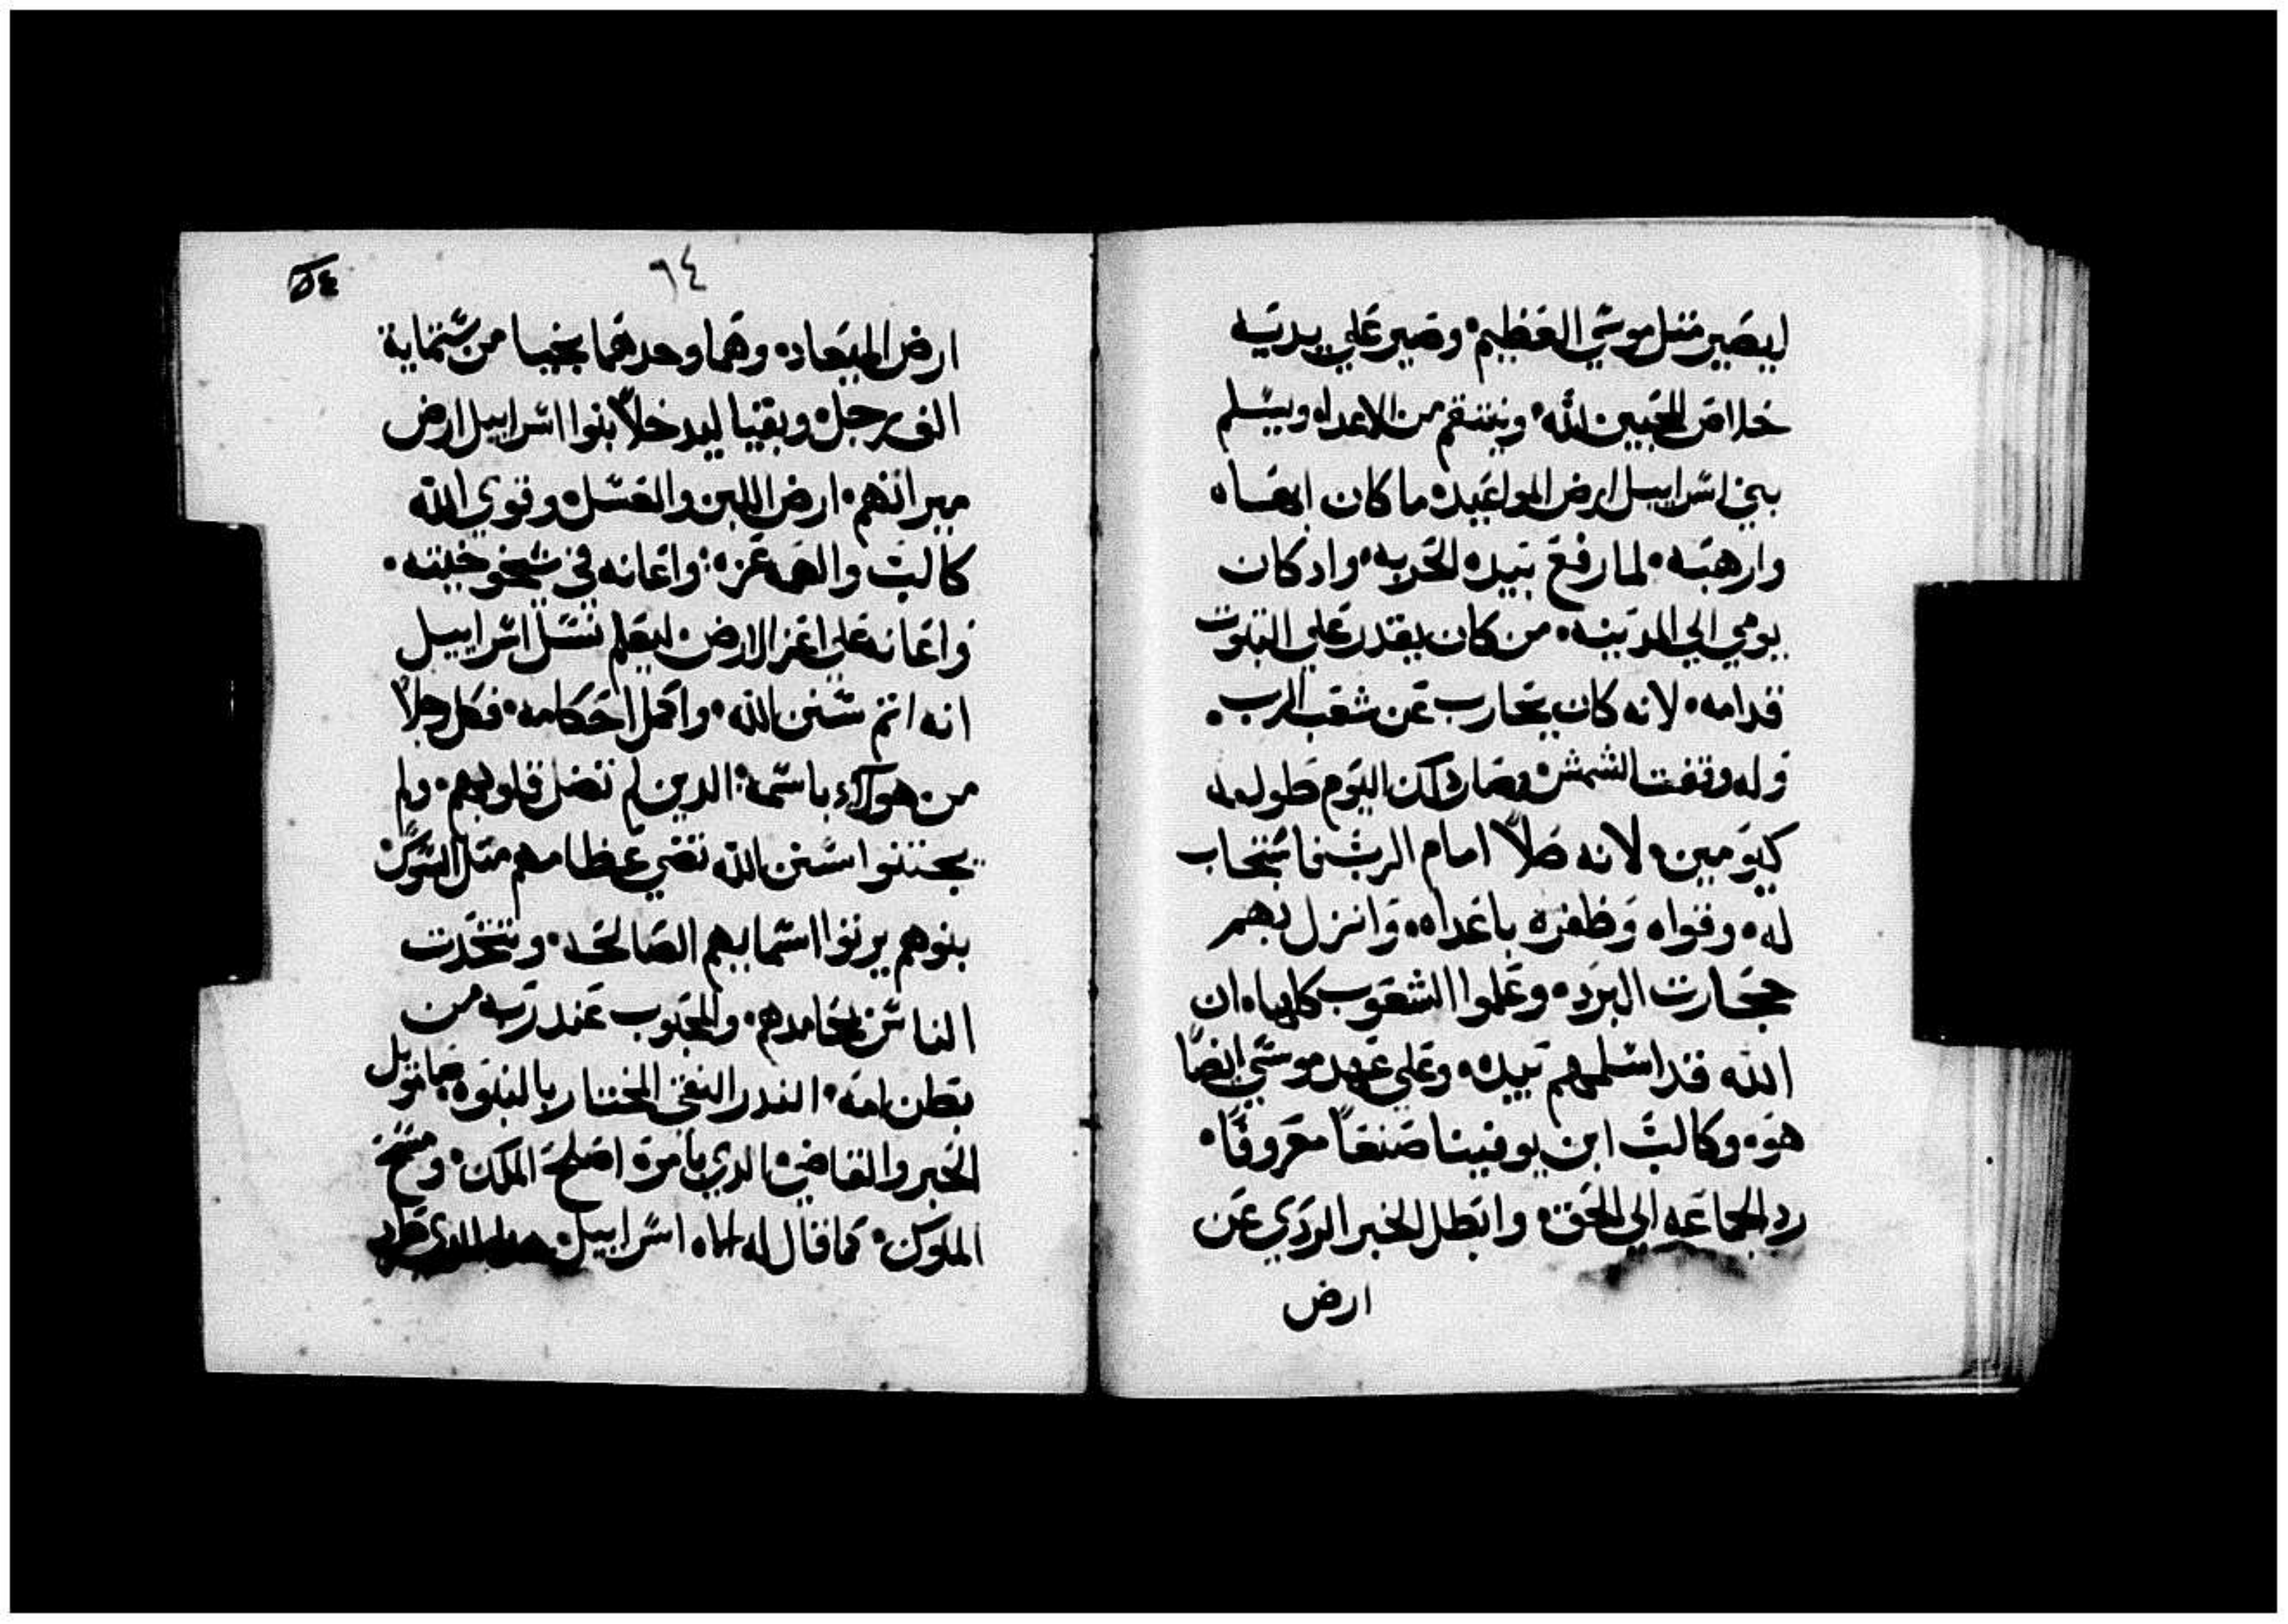 ليصير متل موسي العظيم؛ وصير علي يديه
خلاص للمحبين لله؛ وينتقم من الاعداه ويسلم
بني اسراييل ارض المواعيد؛ ما كان ابهاه
وارهبه؛ لما رفع بيده الحربه؛ واد كان
يومي الي المدينه؛ من كان يقدر علي التبوت
قدامه؛ لانه كان يحارب عن شعب الرب؛
وله وقفت الشمس؛ وصار داك اليوم طوله له
كيومين؛ لانه صلا امام الرب؛ فاستجاب
له؛ وقواه وظفره باعداه؛ وانزل بهم
حجارت البرد؛ وعلموا الشعوب كلها؛ ان
الله قد اسلمهم بيده؛ وعلي عهد موسي ايضًا
هو؛ وكالب ابن يوفينا صنعًا معروفًا؛
رد الجماعه الي الحق؛ وابطل الخبر الردي عن
ارض
٥٤
٦٤
ارض الميعاد؛ وهما وحدهما نجيا من ستماية
الف رجل؛ وبقيا ليدخلا بنوا اسراييل ارض
ميراتهم؛ ارض اللبن والعسل؛ وقوي الله
كالب والهمه عزه؛ واعانه في شيخوخيته؛
واعانه علي اعز الارض؛ ليعلم نسل اسراييل
انه اتم سنن الله؛ واكمل احكامه؛ فكل رجلا
من هولاء باسمه؛ الدين لم تضل قلوبهم؛ ولم
يجتنبوا سنن الله تضي عظامهم متل
بنوهم يرتوا اسمايهم الصالحه؛ وتتحدت
الناس بمحامدهم؛ والمحبوب عند ربه من
بطن امه؛ الندر النقي المختار بالنبوه صانويل
الحبر والقاضي؛ الدي بامره اصلح الملك؛ ومسح
الملوك؛ كما قال له اله اسراييل؛